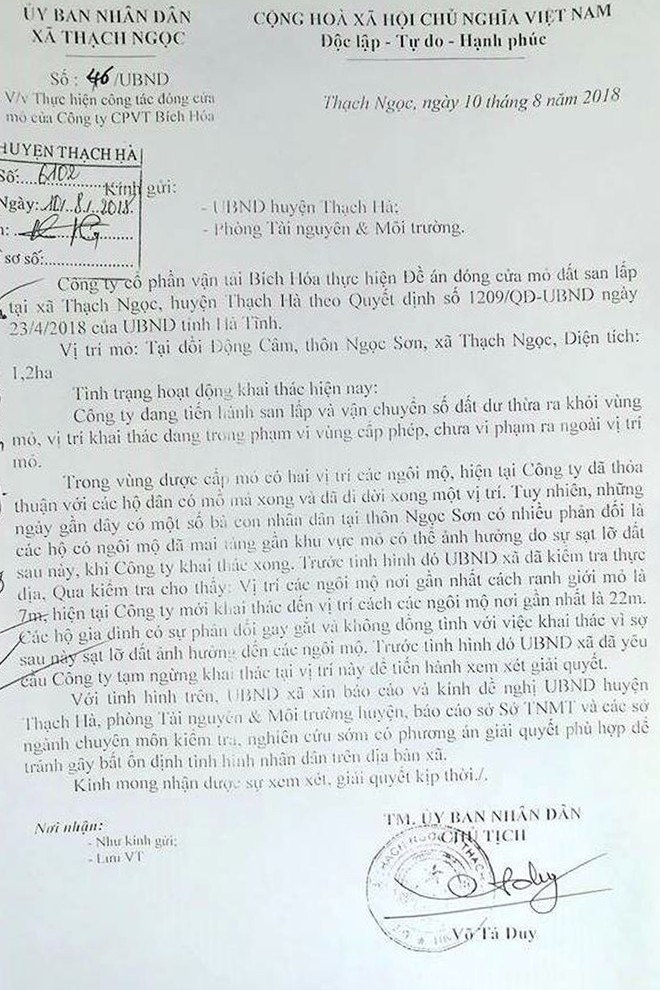 ỦY BAN NHÂN DÂN
XÃ THẠCH NGỌC
CỘNG HOÀ XÃ HỘI CHỦ NGHĨA VIỆT NAM
Độc lập - Tự do - Hạnh phúc
Số : 46/UBND
V/v Thực hiện công tác đóng cửa
mỏ của Công ty CPVT Bích Hóa
Thạch Ngọc, ngày 10 tháng 8 năm 2018
HUYỆN THẠCH HÀ
Số: 6102
Ngày: 10/.8./.2018.
sơ số:
Kính gửi:
- UBND huyện Thạch Hà;
- Phòng Tài nguyên & Môi trường.
Công ty cổ phần vận tải Bích Hóa thực hiện Đề án đóng cửa mỏ đất san lấp
tại xã Thạch Ngọc, huyện Thạch Hà theo Quyết định số 1209/QĐ-UBND ngày
23/4/2018 của UBND tỉnh Hà Tĩnh.
Vị trí mỏ: Tại đồi Động Câm, thôn Ngọc Sơn, xã Thạch Ngọc, Diện tích:
1,2ha
Tình trạng hoạt động khai thác hiện nay:
Công ty đang tiến hành san lấp và vận chuyển số đất dư thừa ra khỏi vùng
mỏ, vị trí khai thác đang trong phạm vi vùng cấp phép, chưa vi phạm ra ngoài vị trí
mỏ.
Trong vùng được cấp mỏ có hai vị trí các ngôi mộ, hiện tại Công ty đã thỏa
thuận với các hộ dân có mồ mả xong và đã di dời xong một vị trí. Tuy nhiên, những
ngày gần đây có một số bà con nhân dân tại thôn Ngọc Sơn có nhiều phản đối là
các hộ có ngôi mộ đã mai táng gần khu vực mỏ có thể ảnh hưởng do sự sạt lỡ đất
sau này, khi Công ty khai thác xong. Trước tình hình đó UBND xã đã kiểm tra thực
địa, Qua kiểm tra cho thấy: Vị trí các ngôi mộ nơi gần nhất cách ranh giới mỏ là
7m, hiện tại Công ty mới khai thác đến vị trí cách các ngôi mộ nơi gần nhất là 22m.
Các hộ gia đình có sự phản đối gay gắt và không đồng tình với việc khai thác vì sợ
sau này sạt lỡ đất ảnh hưởng đến các ngôi mộ. Trước tình hình đó UBND xã đã yêu
cầu Công ty tạm ngừng khai thác tại vị trí này để tiến hành xem xét giải quyết.
Với tình hình trên, UBND xã xin báo cáo và kính đề nghị UBND huyện
Thạch Hà, phòng Tài nguyên & Môi trường huyện, báo cáo sở Sở TNMT và các sở
ngành chuyên môn kiểm tra, nghiên cứu sớm có phương án giải quyết phù hợp để
tránh gây bất ổn định tình hình nhân dân trên địa bàn xã.
Kính mong nhận được sự xem xét, giải quyết kịp thời./.
Nơi nhận:
- Như kính gửi;
- Lưu VT
TM. ỦY BAN NHÂN DÂN
CHỦ TỊCH
Võ Tá Duy